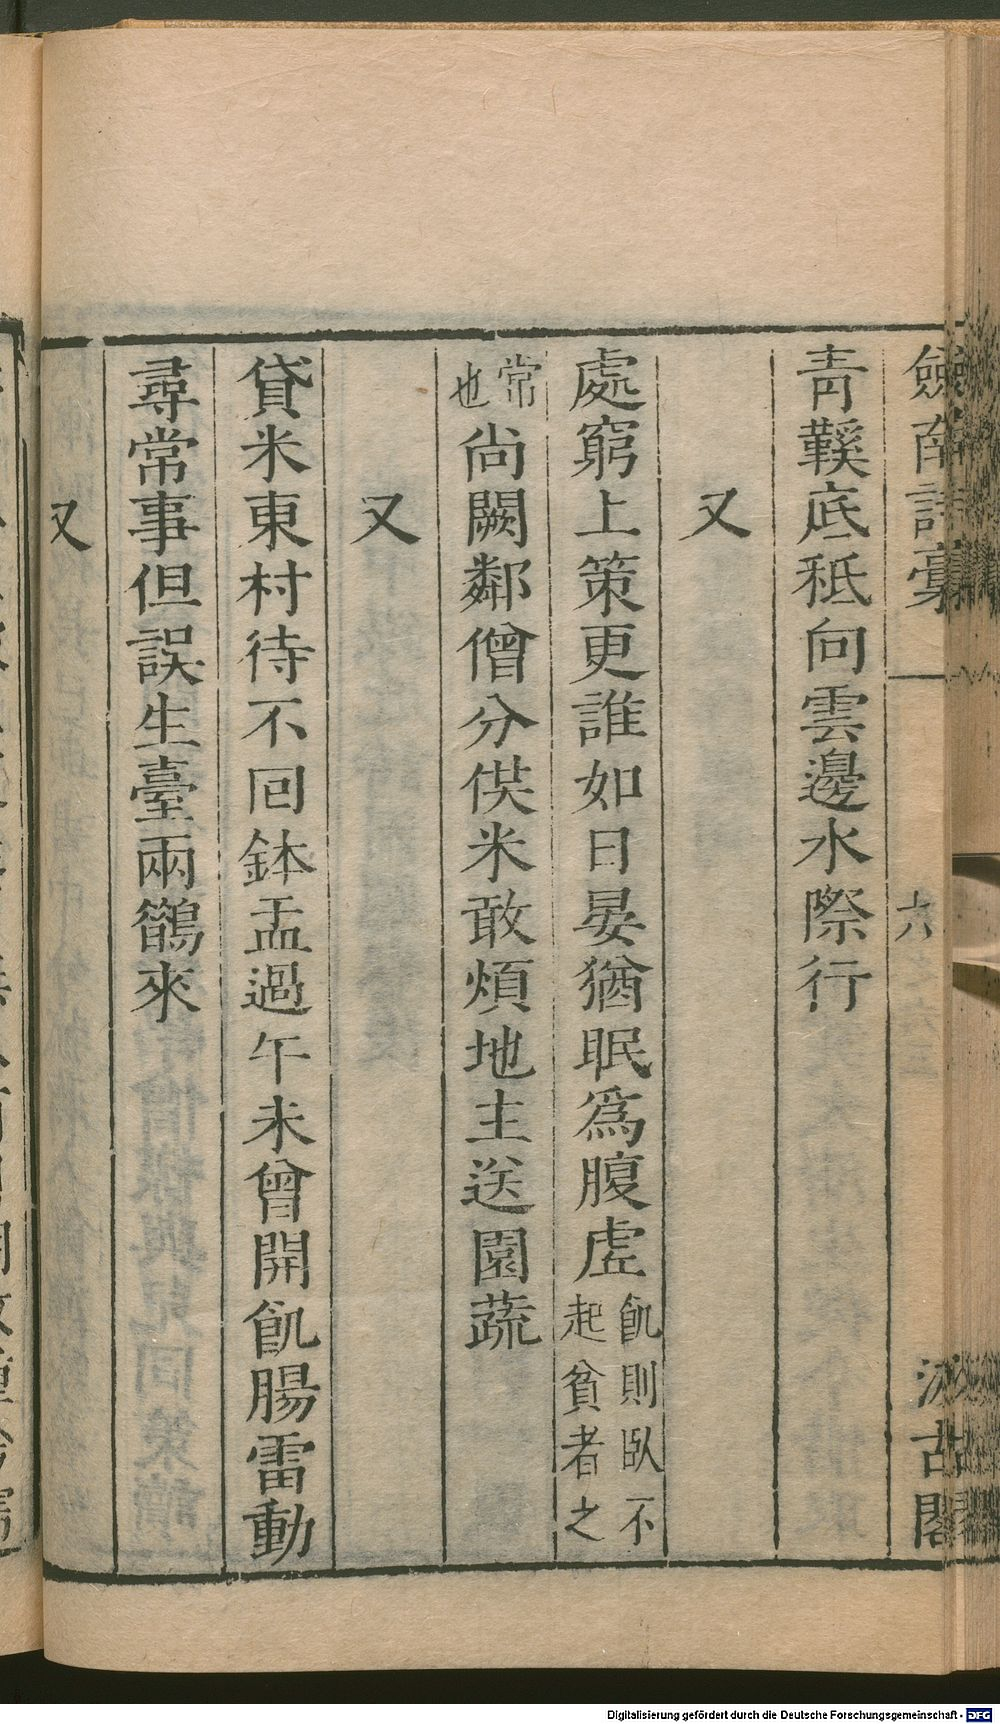 劍南詩稾 六 汲古閣
青鞵底秪向雲邊水際行
又
處窮上策更誰如日晏猶眠爲腹虛飢則臥不起貧者之
常也尚闕鄰僧分供米敢煩地主送園蔬
又
貸米東村待不回鉢盂過午未曾開飢腸雷動
尋常事但誤生臺兩鶴來
又
Digitalisierung gefördert durch die Deutsche Forschungsgemeinschaft - DFG